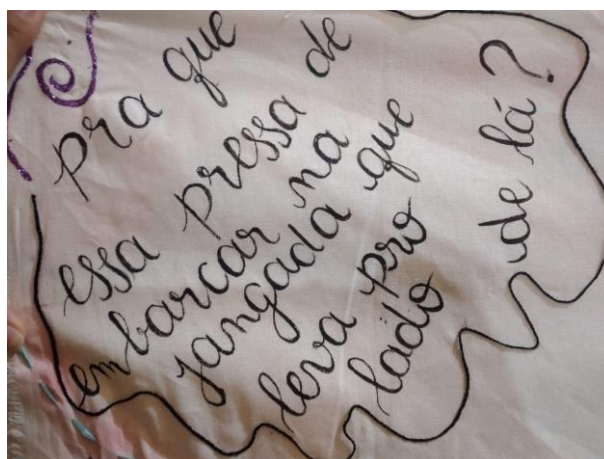 Pra que
essa pressa de
embarcar na
jangada que
leva pro
lado
de lá?